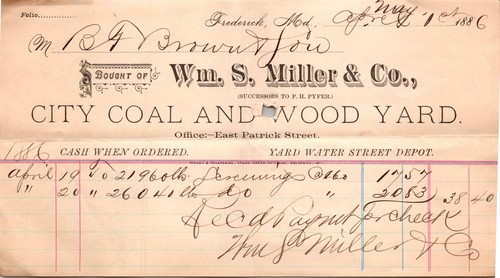 Folio
Frederick, Md., May 1st 1886
M B F Brown & Son
BOUGHT OF Wm. S. Miller & Co.,
(SUCCESSORS TO P. H. PYFER.)
CITY COAL AND WOOD YARD.
Office:—East Patrick Street.
1886 CASH WHEN ORDERED. YARD WATER STREET DEPOT.
April 19 To 21960 lb. Screenings @ 160 17 57
" 20 " 26040 lb do 20 83 38 40
Rec'd Paymt pr check
Wm S Miller & Co